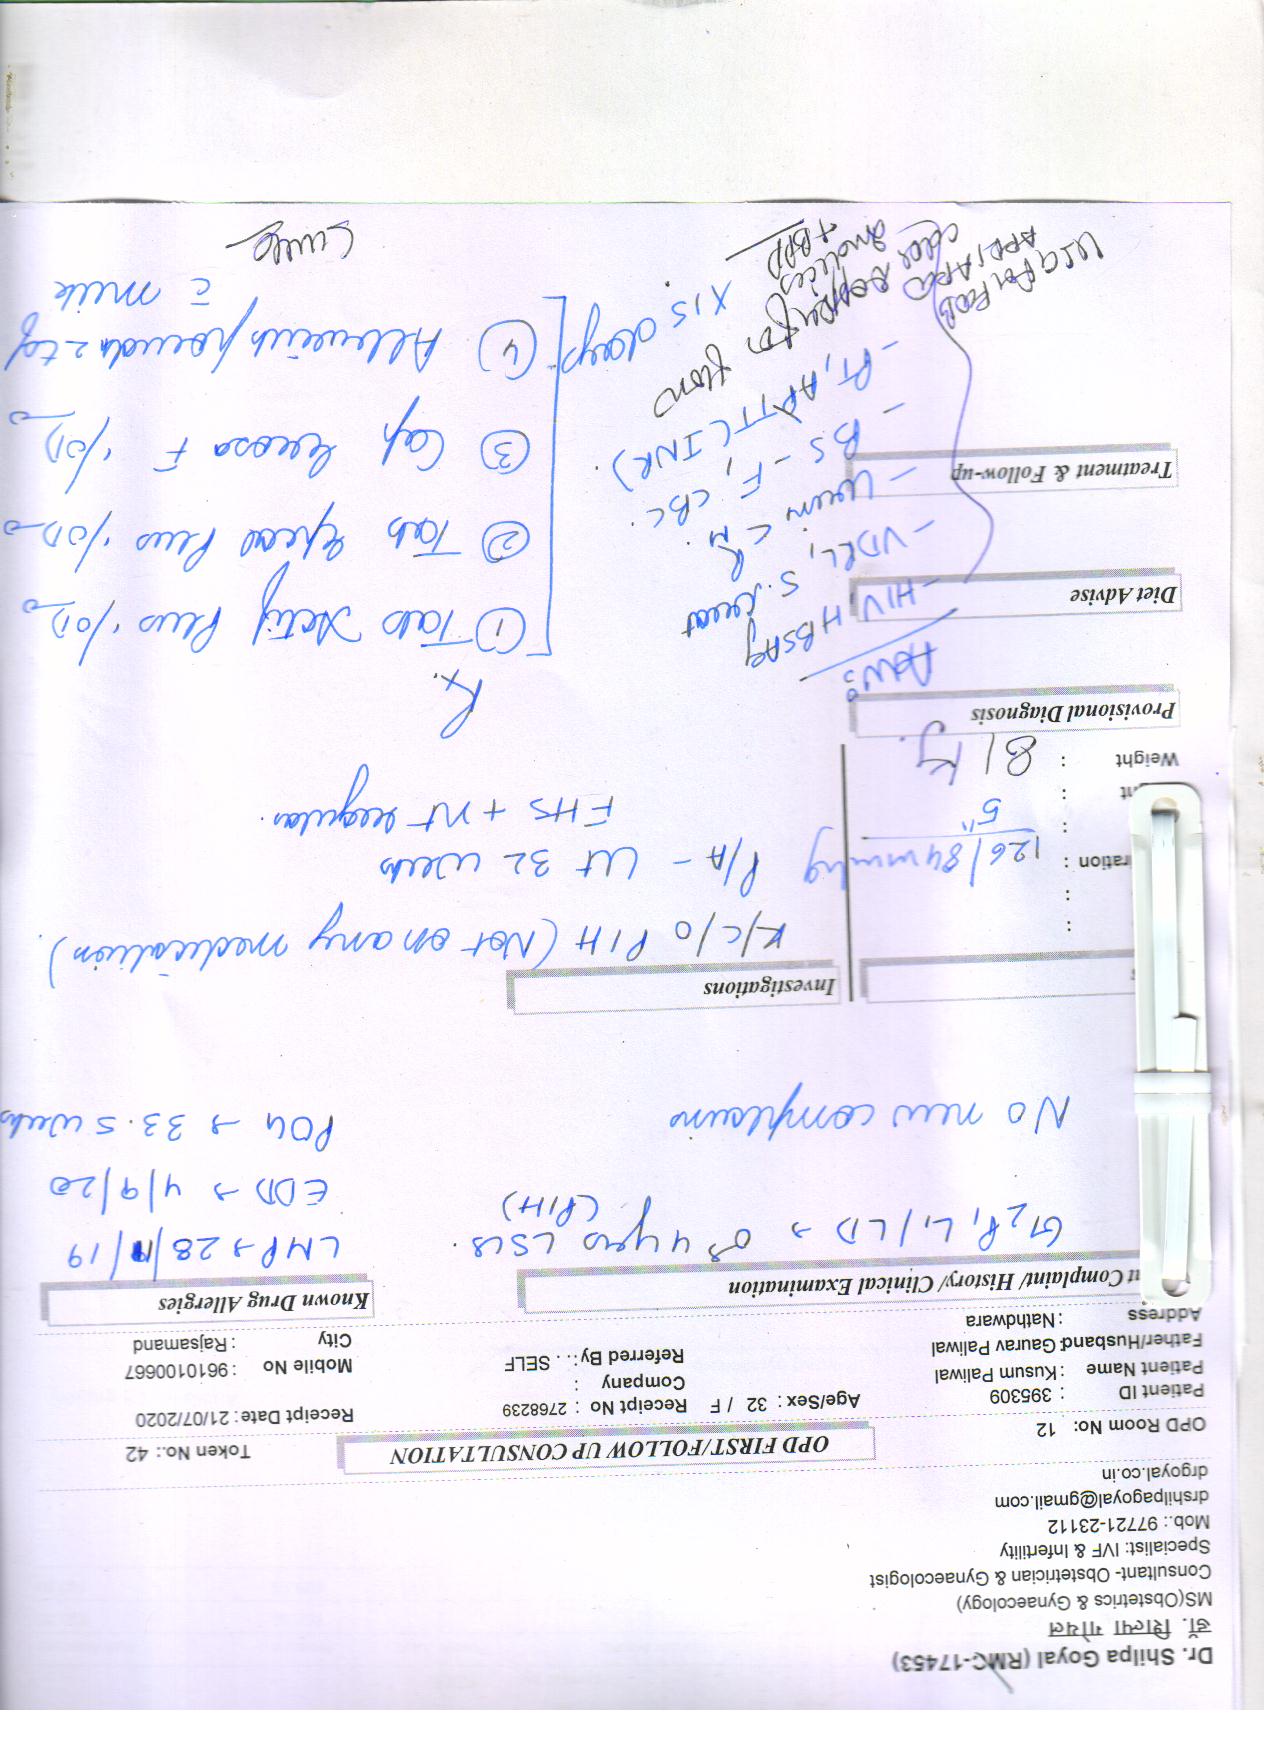 Dr. Shilpa Goyal (RMC-17453)
डॉ. शिल्पा गोयल
MS(Obstetrics & Gynaecology)
Consultant- Obstetrician & Gynaecologist
Specialist: IVF & Infertility
Mob.: 97721-23112
drshilpagoyal@gmail.com
drgoyal.co.in
OPD Room No: 12
OPD FIRST/FOLLOW UP CONSULTATION
Token No.: 42
Patient ID : 395309
Age/Sex : 32 / F
Receipt No : 2768239
Receipt Date : 21/07/2020
Patient Name : Kusum Paliwal
Company :
Mobile No : 9610100667
Father/Husband: Gaurav Paliwal
Referred By: . . SELF
City : Rajsamand
Address : Nathdwara
t Complaint/ History/ Clinical Examination
Known Drug Allergies
G2P1L1/LD → 4 yrs LSCS.
(PIH)
LMP → 28/11/19
EDD → 4/9/20
POG → 33.5 weeks
No new complains
Investigations
K/C/O PIH (Not on any medication).
ration : 126/84 mmHg
5"
Weight : 81 kg.
P/A - Ut 32 weeks
FHS + nt regular.
Provisional Diagnosis
Adv:
Rx.
- HIV, HBSAg
Diet Advise
- VDRL, S. creat
- Urine C M.
Treatment & Follow-up
- BS - F, CBC.
- PT, APTT (INR).
① Tab Plus 1 OD
② Tab Plus 1 OD
③ Cap F 1 OD
④ powder 2 tsf
c̄ milk
X 15 days
USG for FWB
+ BPP